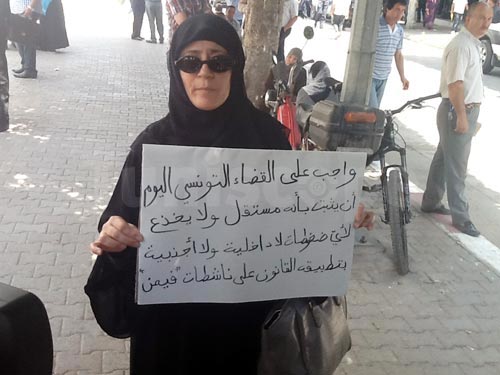 واجب على القضاء التونسي اليوم
أن يثبت بأنه مستقل ولا يخضع
لأي ضغوطات لا داخلية ولا أجنبية
بتطبيقه القانون على ناشطات "فيمن"